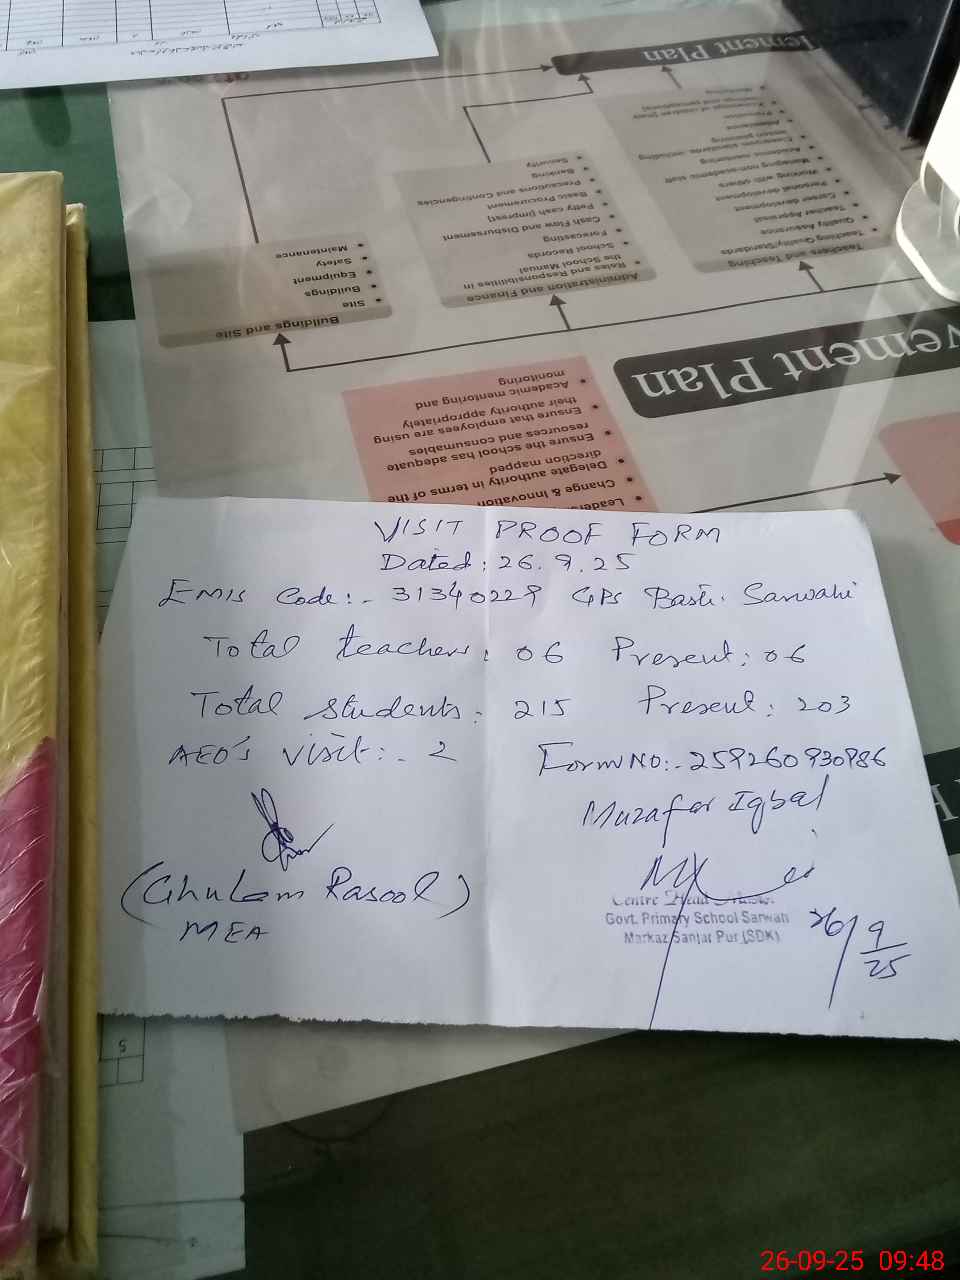 ement Plan
Monitoring
Knowledge of children [their
feelings and perceptions]
Promotion
Attendance
lesson planning
Classroom standards, including
Academic mentoring
Managing non-academic staff
Working with others
Personal development
Career development
Teacher Appraisal
Quality Assurance
Teaching Quality/Standards
Teachers and Teaching
Security
Banking
Precautions and Contingencies
Basic Procurement
Petty cash [imprest]
Cash Flow and Disbursement
Forecasting
School Records
the School Manual
Roles and Responsibilities in
Administration and Finance
Maintenance
Safety
Equipment
Buildings
Site
Buildings and Site
vement Plan
monitoring
Academic mentoring and
their authority appropriately
Ensure that employees are using
resources and consumables
Ensure the school has adequate
direction mapped
Delegate authority in terms of the
Change & Innovation
VISIT PROOF FORM
Dated: 26.9.25
EMIS Code:- 31340229 GPS Basti Sarwahi
Total teachers: 06 Present: 06
Total students: 215 Present: 203
AEO's visit:- 2 Form No:- 259260930986
Muzafar Iqbal
(Ghulam Rasool)
MEA
Centre Head Master
Govt. Primary School Sarwah
Markaz Sanjar Pur (SDK)
26/9/25
5
26-09-25 09:48